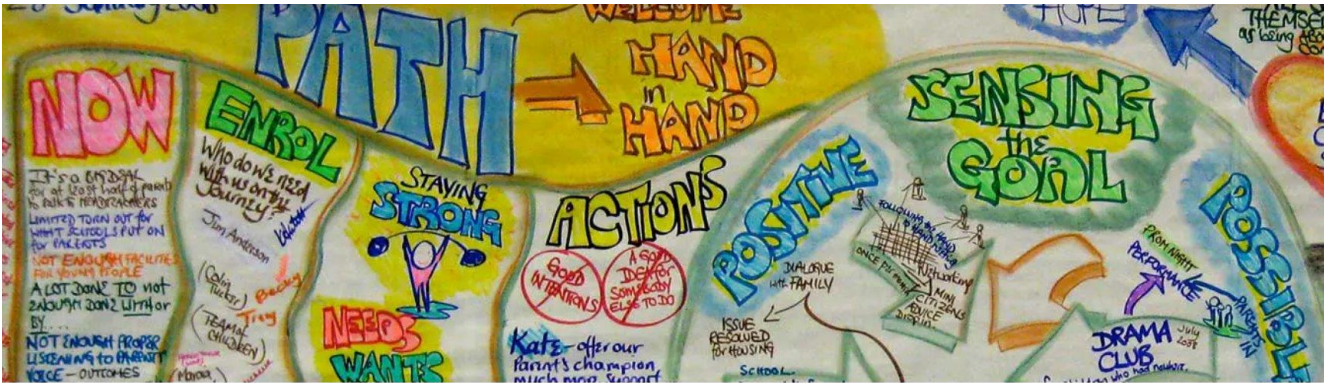 PATH
WELCOME
HAND
in
HAND
HOPE
THEMSE
as being
NOW
It's a BIG DEAL
for at least half of parents
to talk to HEADTEACHERS
LIMITED TURN OUT for
WHAT SCHOOLS PUT ON
for PARENTS
NOT ENOUGH FACILITIES
FOR YOUNG PEOPLE
A LOT DONE TO not
ENOUGH DONE WITH or
BY....
NOT ENOUGH PROPER
LISTENING to PARENT
VOICE - OUTCOMES
ENROL
Who do we need
with us on the
Journey?
Jim Anderson
(Colin
Tucker)
Becky
Troy
(TEAM of
CHILDREN)
STAYING
STRONG
NEEDS
WANTS
ACTIONS
GOOD
INTENTIONS
A GOOD
IDEA for
SOMEBODY
ELSE TO DO
Kate - offer our
Parent's champion
much more support
SENSING
the
GOAL
POSITIVE
DIALOGUE
with FAMILY
ISSUE
RESOLVED
for HOUSING
SCHOOL
FOLLOWING
HAND
Networking
MINI
CITIZENS
POLICE
POSSIBLE
PROM NIGHT
PERFORMANCE
PARENTS
IN
DRAMA
CLUB
July
who had